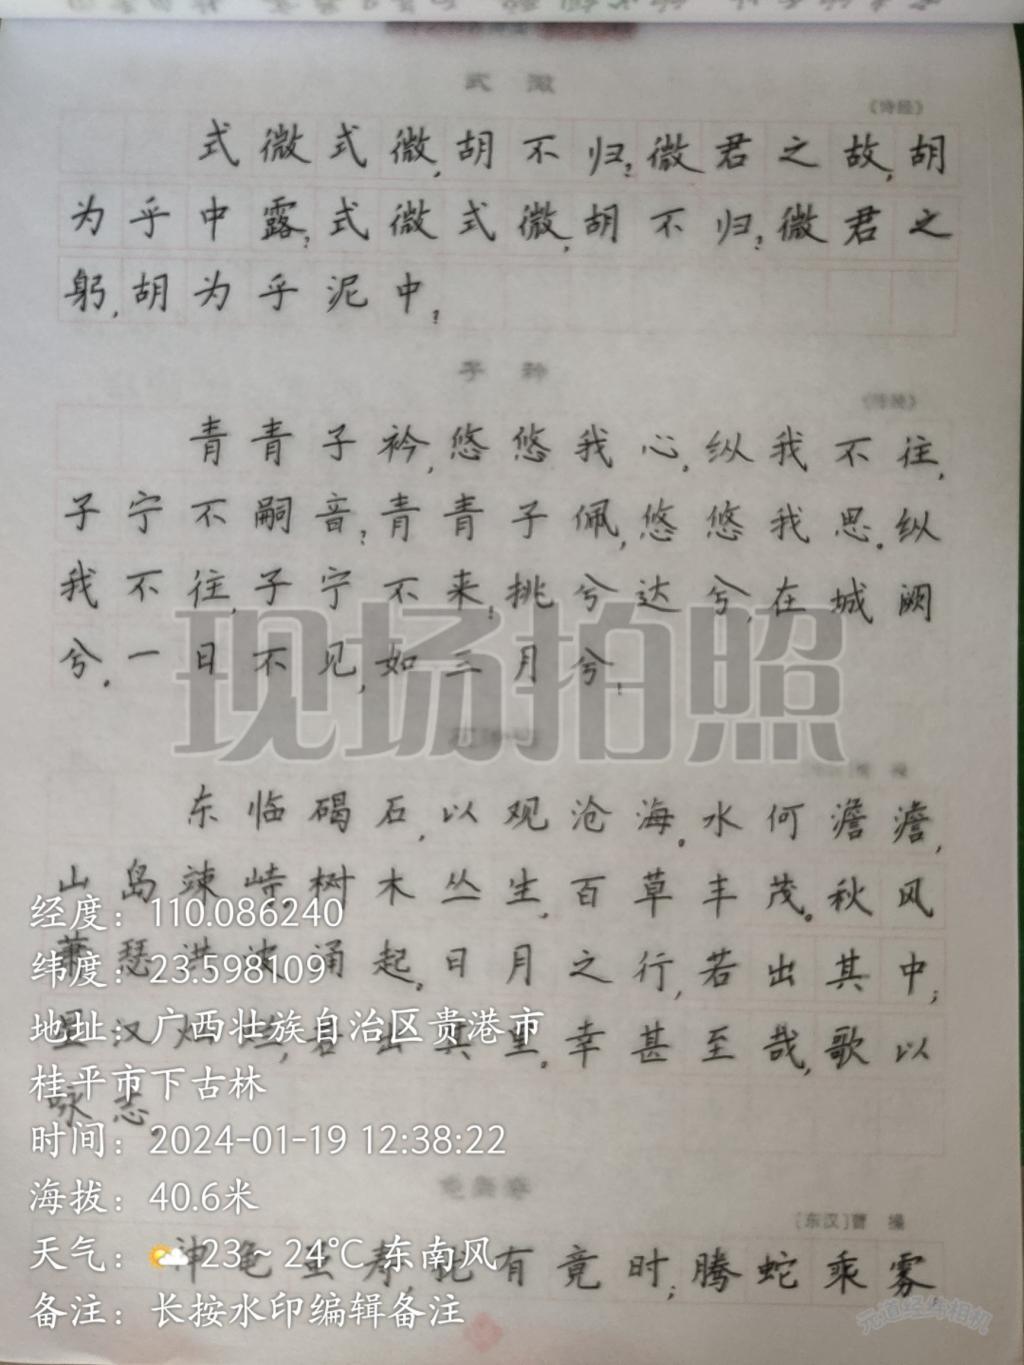 式微
《诗经》
式微式微,胡不归?微君之故,胡
为乎中露?式微式微,胡不归?微君之
躬,胡为乎泥中?
子衿
《诗经》
青青子衿,悠悠我心,纵我不往,
子宁不嗣音?青青子佩,悠悠我思。纵
我不往,子宁不来?挑兮达兮,在城阙
兮。一日不见,如三月兮!
现场拍照
东临碣石,以观沧海。水何澹澹,
山岛竦峙,树木丛生,百草丰茂。秋风
萧瑟洪波涌起。日月之行,若出其中;
星汉灿烂,若出其里。幸甚至哉,歌以
咏志。
龟虽寿
[东汉]曹操
神龟虽寿,犹有竟时;腾蛇乘雾,
经度:110.086240
纬度:23.598109
地址:广西壮族自治区贵港市
桂平市下古林
时间:2024-01-19 12:38:22
海拔:40.6米
天气:23~24℃ 东南风
备注:长按水印编辑备注
元道经纬相机